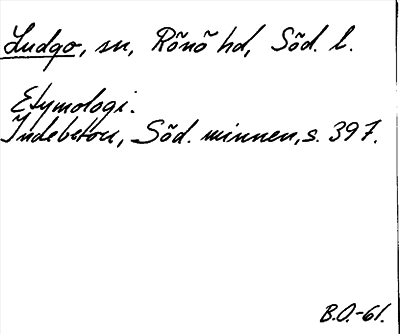 Ludgo, sn, Rönö hd, Söd. l.
Etymologi.
Indebetou, Söd. minnen, s. 397.
B.O.-61.